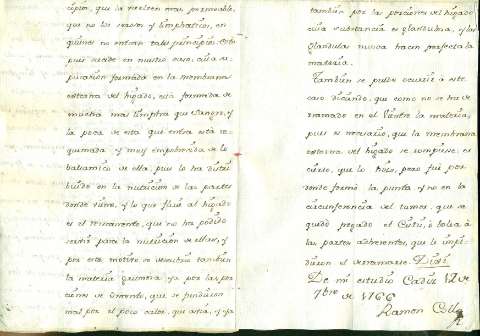 copia, que la hiciesen mas permeable,
que no los crasos y limphaticos, en
quienes no entran tales principios. Esta
pues decide en nuestro caso, cuia su-
puracion formada en la membrana
externa del higado, está formada de
mucha mas limpha que sangre, y
la poca de esta que entra está re-
quemada y muy empobrecida de lo
balsamico de ella, pues lo ha distri
buido en la nutricion de las partes
donde viene, y lo que fluie al higado
es el recremento, que no ha podido
servir para la nutricion de ellas, y
por este motivo se descubrio tambien
la materia ya por las por
ciones de que se fundieron
mal por el poco calor, que avia, y ya
tambien por las porciones del higado
cuia substancia es glandulosa, y las
glandulas nunca hacen perfecta la
materia.
Tambien se puede ocurrir a este
caso diciendo, que como no se ha de
rramado en el vientre la materia,
pues es necesario, que la membrana
externa del higado se rompiese: es
cierto, que lo hizo, pero fue por
donde formó la punta y no en la
circunferencia del tumor, que se
quedó pegado el Cutis, o bolsa á
las partes adherentes, que le impi-
dieron el derramarse. Dixi.
De mi estudio Cadiz 12 de
7bre de 1766
Ramon